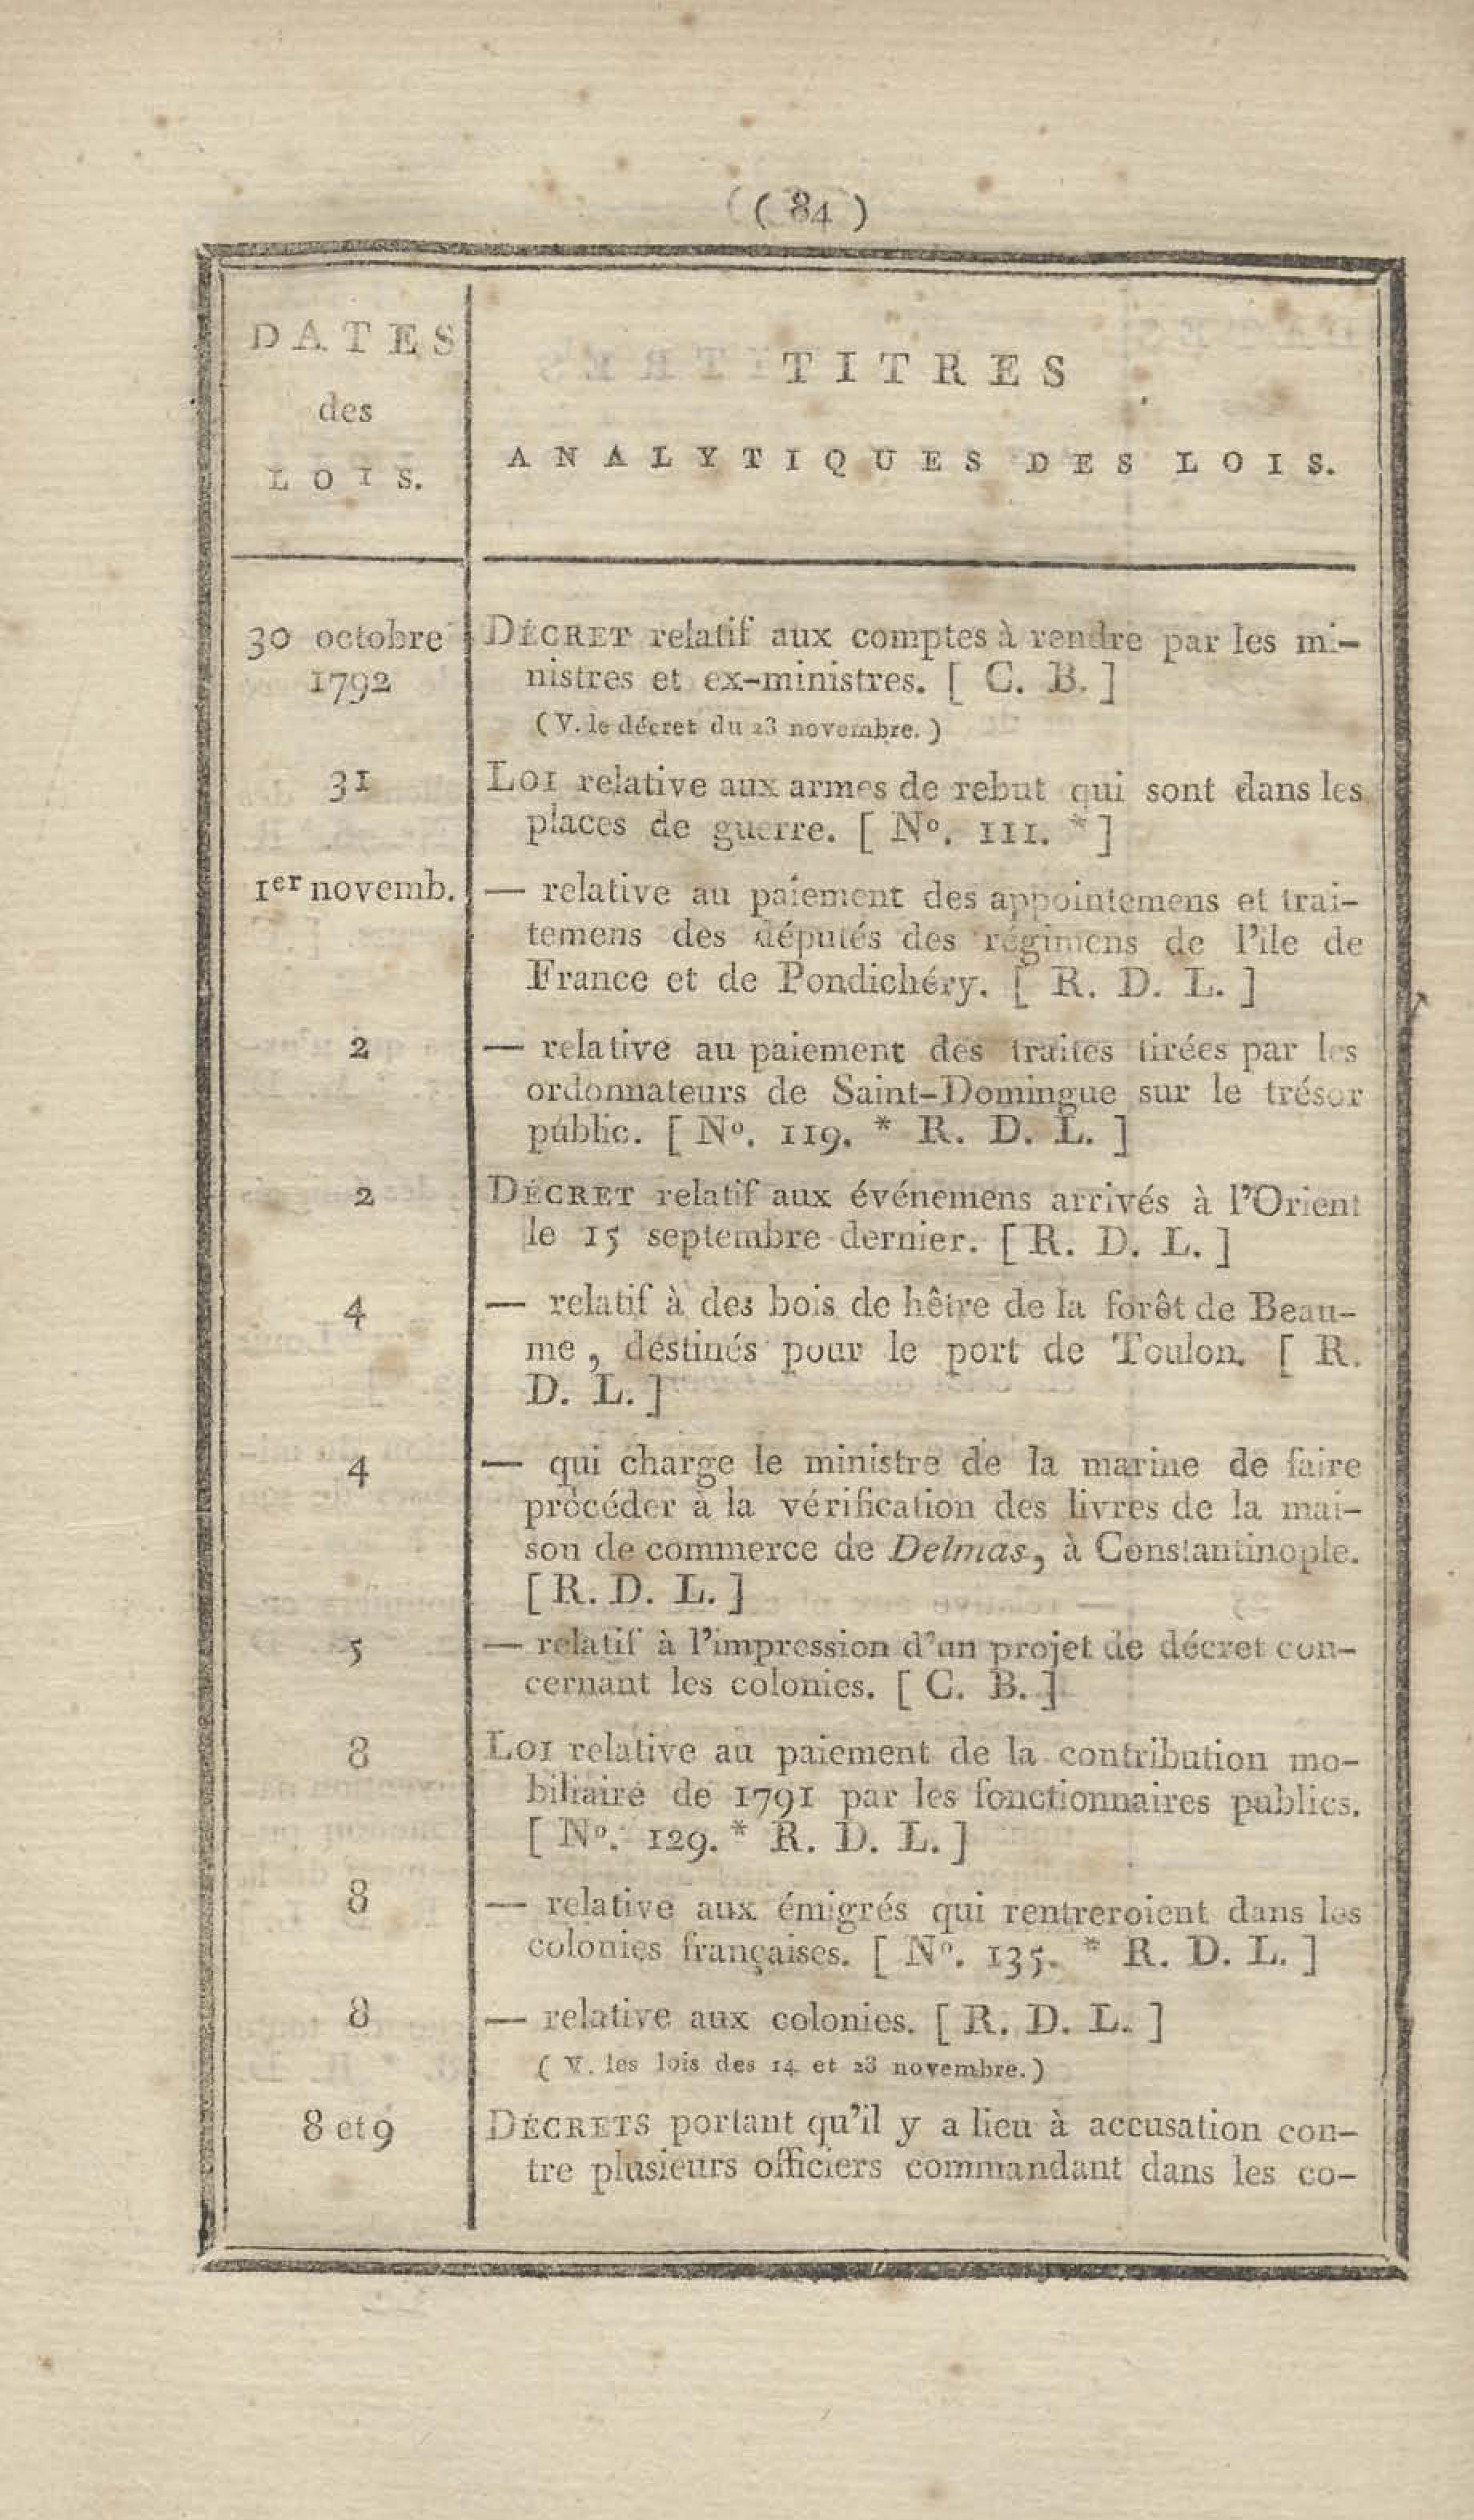 ( 84 )
DATES
des
LOIS.
TITRES
ANALYTIQUES DES LOIS.
30 octobre 1792
DÉCRET relatif aux comptes à rendre par les mi-
nistres et ex-ministres. [ C. B. ]
( V. le décret du 23 novembre. )
31
LOI relative aux armes de rebut qui sont dans les
places de guerre. [ Nº. 111. * ]
1er novemb.
— relative au paiement des appointemens et trai-
temens des députés des régimens de l'ile de
France et de Pondichéry. [ R. D. L. ]
2
— relative au paiement des traites tirées par les
ordonnateurs de Saint-Domingue sur le trésor
public. [ Nº. 119. * R. D. L. ]
2
DÉCRET relatif aux événemens arrivés à l'Orient
le 15 septembre dernier. [ R. D. L. ]
4
— relatif à des bois de hêtre de la forêt de Beau-
me , destinés pour le port de Toulon. [ R.
D. L. ]
4
— qui charge le ministre de la marine de faire
procéder à la vérification des livres de la mai-
son de commerce de Delmas, à Constantinople.
[ R. D. L. ]
5
— relatif à l'impression d'un projet de décret con-
cernant les colonies. [ C. B. ]
8
LOI relative au paiement de la contribution mo-
biliaire de 1791 par les fonctionnaires publics.
[ Nº. 129. * R. D. L. ]
8
— relative aux émigrés qui rentreroient dans les
colonies françaises. [ Nº. 135. * R. D. L. ]
8
— relative aux colonies. [ R. D. L. ]
( V. les lois des 14 et 23 novembre. )
8 et 9
DÉCRETS portant qu'il y a lieu à accusation con-
tre plusieurs officiers commandant dans les co-